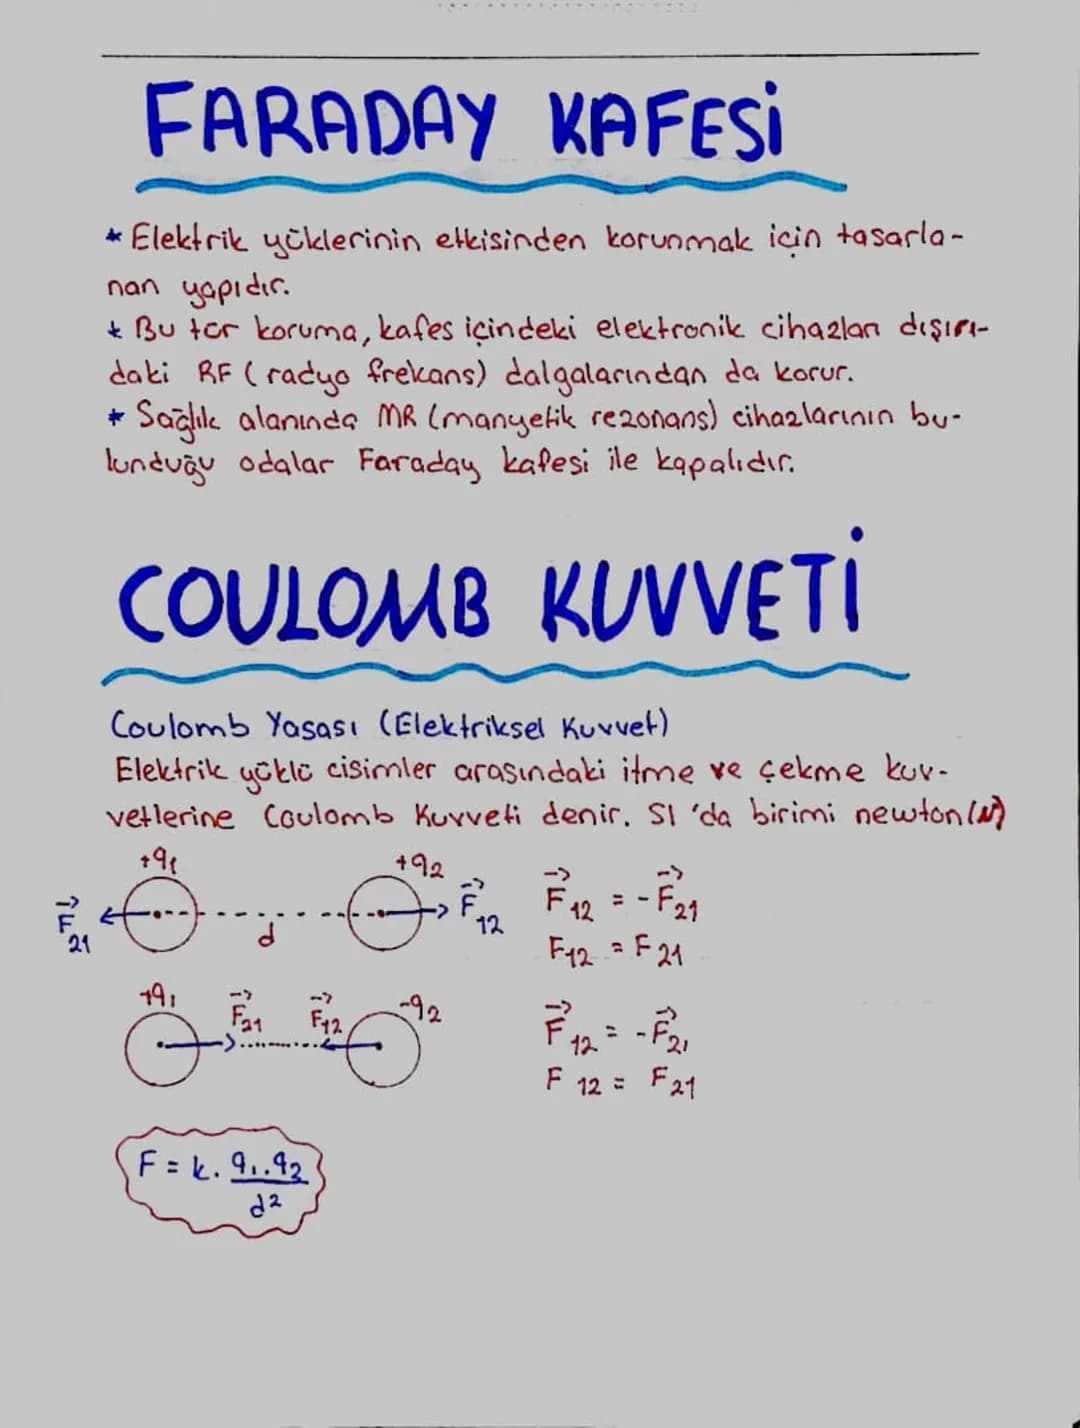 FARADAY KAFESİ
* Elektrik yüklerinin etkisinden korunmak için tasarla-
nan yapıdır.
* Bu tür koruma, kafes içindeki elektronik cihazları dışırı-
daki RF (radyo frekans) dalgalarından da korur.
* Sağlık alanında MR (manyetik rezonans) cihazlarının bu-
lunduğu odalar Faraday kafesi ile kapalıdır.
COULOMB KUVVETİ
Coulomb Yasası (Elektriksel Kuvvet)
Elektrik yüklü cisimler arasındaki itme ve çekme kuv-
vetlerine Coulomb Kuvveti denir. SI 'da birimi newton(N)
+q1 +q2
F⃗21 d F⃗12
F⃗12 = -F⃗21
F12 = F21
+q1 F⃗21 F⃗12 -q2
F⃗12 = -F⃗21
F12 = F21
F = k. q1.q2
d²